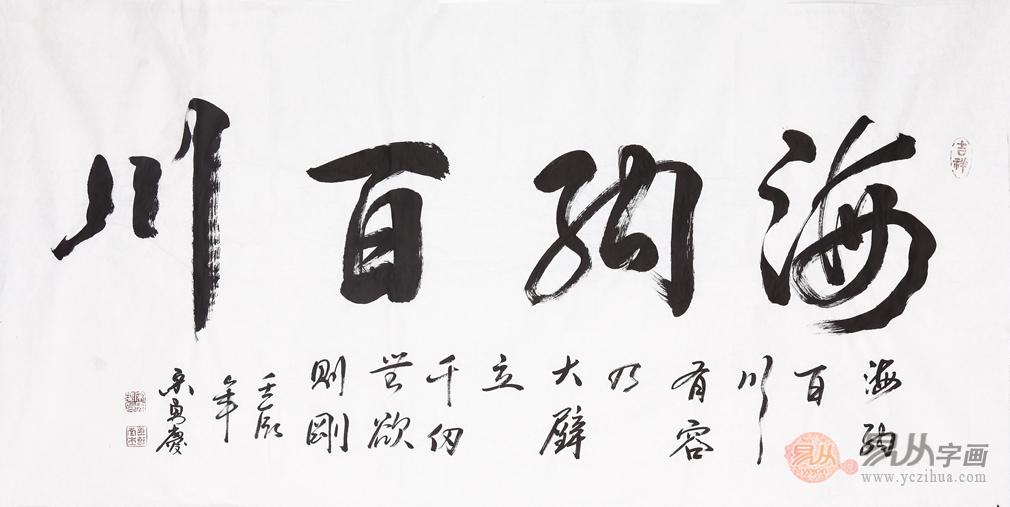 海纳百川
吉祥
海纳
百
川
有容
乃
大壁
立
千仞
无欲
则刚
壬辰
年
易从 字画
www.yczihua.com